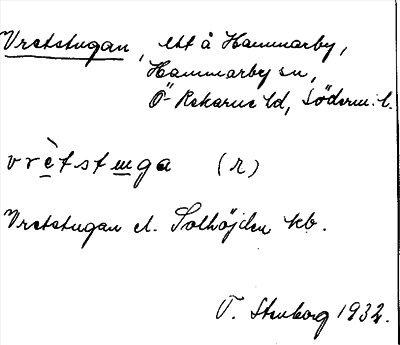 Vretstugan, ett å Hammarby,
Hammarby sn,
Ö-Rekarne hd, Söderm. l.
vrètstuga (r)
Vretstugan el. Solhöjden kb.
T. Stenborg 1932.